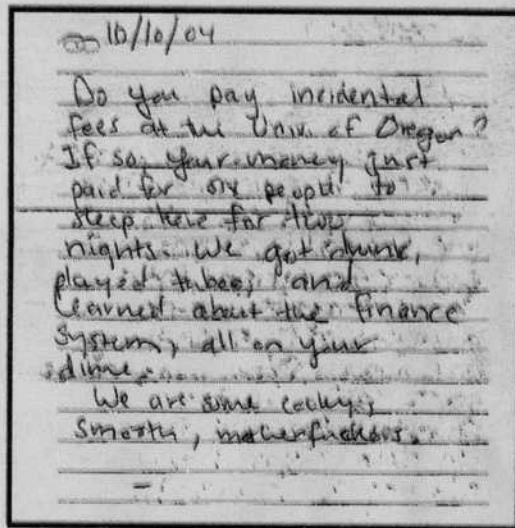 10/10/04
Do you pay incidental
fees at the Univ. of Oregon?
If so, your money just
paid for six people to
sleep here for two
nights. We got drunk,
played tubes, and
learned about the finance
system, all on your
dime.
We are some cocky,
smooth, motherfuckers.